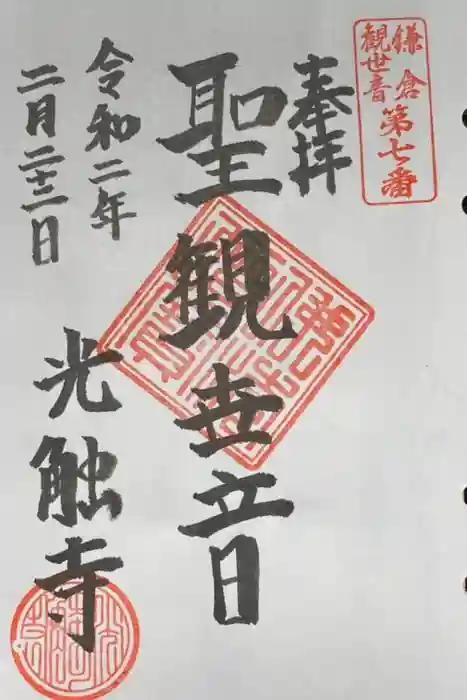 鎌倉
観世音
第七番
奉拝
聖観世音
令和二年
二月二十三日
光触寺